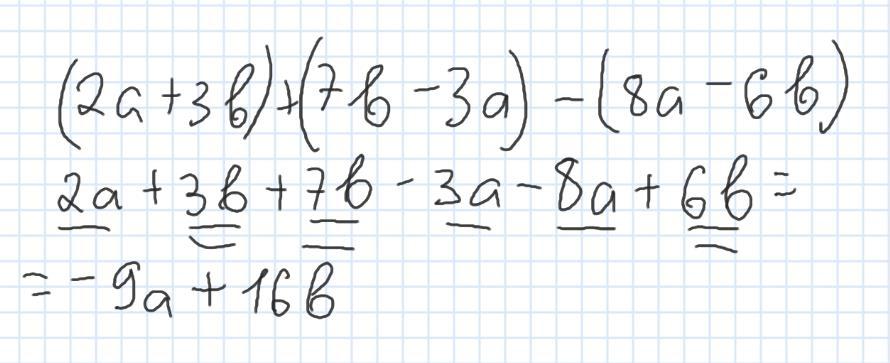 (2a+3b)+(7b-3a)-(8a-6b)
2a+3b+7b-3a-8a+6b=
=-9a+16b